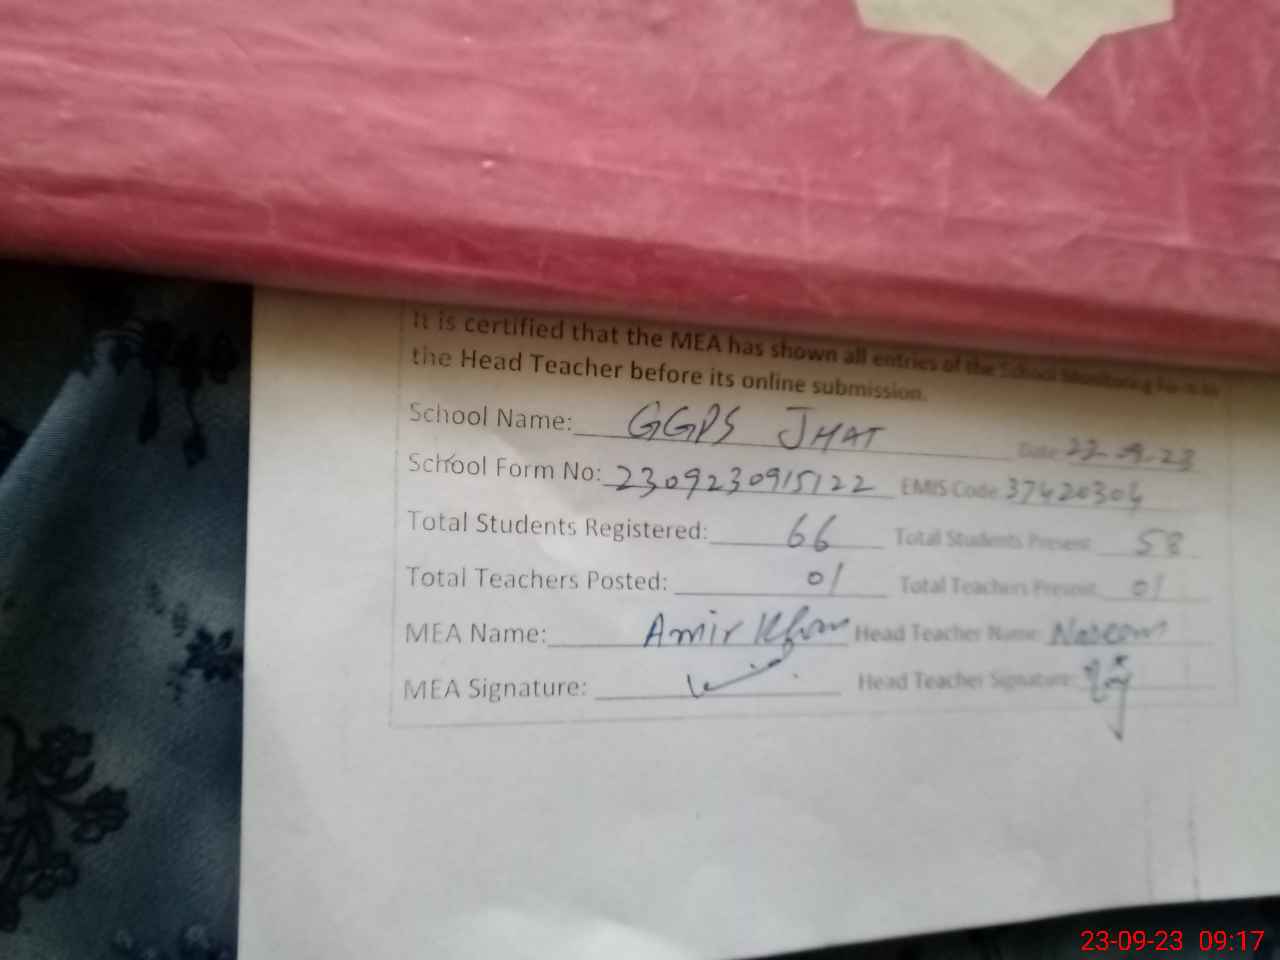 It is certified that the MEA has shown all entries of the School Monitoring Form to
the Head Teacher before its online submission.
School Name: GGPS JHAT Date: 22-9-23
School Form No: 2309230915122 EMIS Code 37420304
Total Students Registered: 66 Total Students Present 58
Total Teachers Posted: 01 Total Teachers Present 01
MEA Name: Amir Khan Head Teacher Name: Naseem
MEA Signature: Head Teacher Signature:
23-09-23 09:17